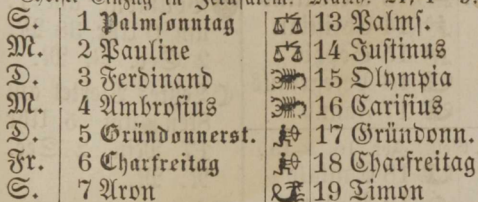 S. 1 Palmsonntag 13 Palms.
M. 2 Pauline 14 Justinus
D. 3 Ferdinand 15 Olympia
M. 4 Ambrosius 16 Carisius
D. 5 Gründonnerst. 17 Gründonn.
Fr. 6 Charfreitag 18 Charfreitag
S. 7 Aron 19 Timon